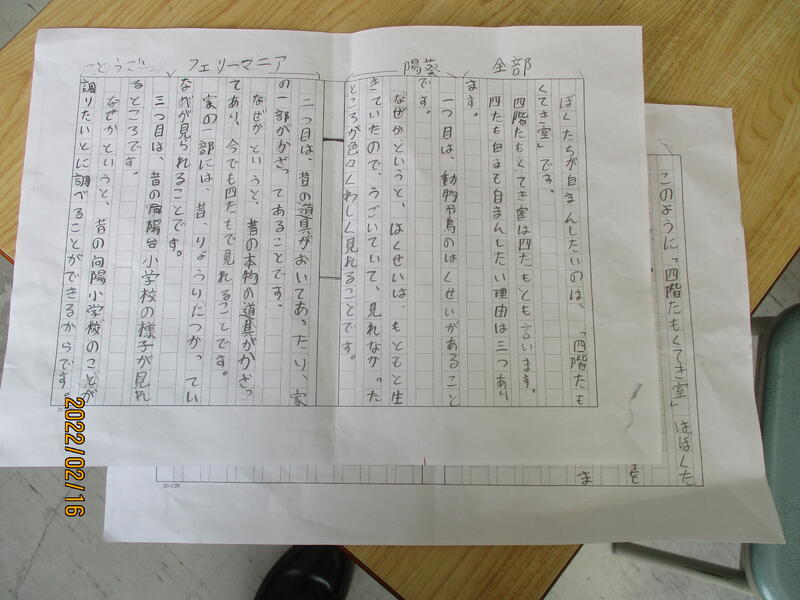 全部
陽葵
フェリーマニア
ことうご
ぼくたちが自まんしたいのは、「四階たも
くてき室」です。
四階たもくてき室は四たもとも言います。
四たもを自まんしたい理由は三つあり
ます。
一つ目は、動物や鳥のはくせいがあること
です。
なぜかというと、はくせいは、もともと生
きていたので、うごいていて、見れなかった
ところが色々くわしく見れることです。
二つ目は、昔の道具がおいてあったり、家
の一部がかざってあることです。
なぜかというと、昔の本物の道具がかざっ
てあり、今でも四たもで見れることです。
家の一部には、昔、りょうりにつかってい
なべが見られることです。
三つ目は、昔の向陽台小学校の様子が見れ
るところです。
なぜかというと、昔の向陽小学校のことが
調りたいとに調べることができるからです。
このように「四階たもくてき室」はぼくた
を
ま
20×20
2022/02/16